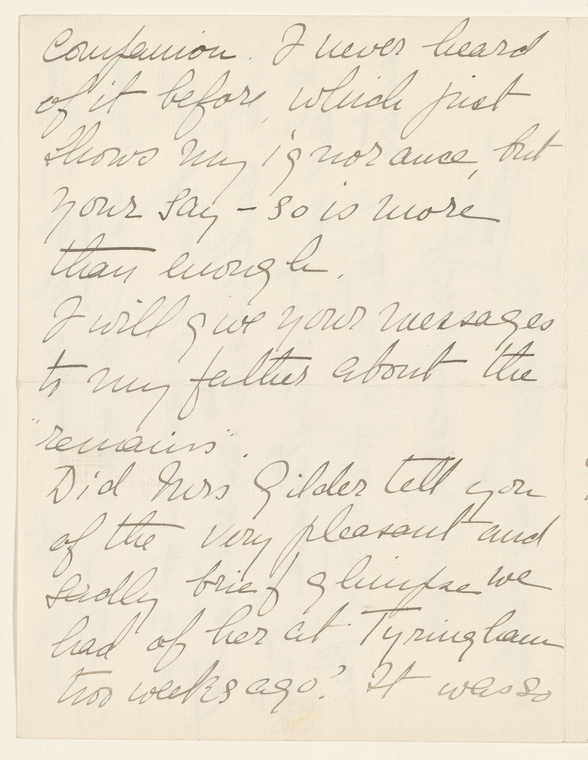 companion. I never heard
of it before, which just
shows my ignorance, but
your say-so is more
than enough.
I will give your messages
to my father about the
"remains".
Did Mrs Gilder tell you
of the very pleasant and
sadly brief glimpse we
had of her at Tyringham
two weeks ago? It was so